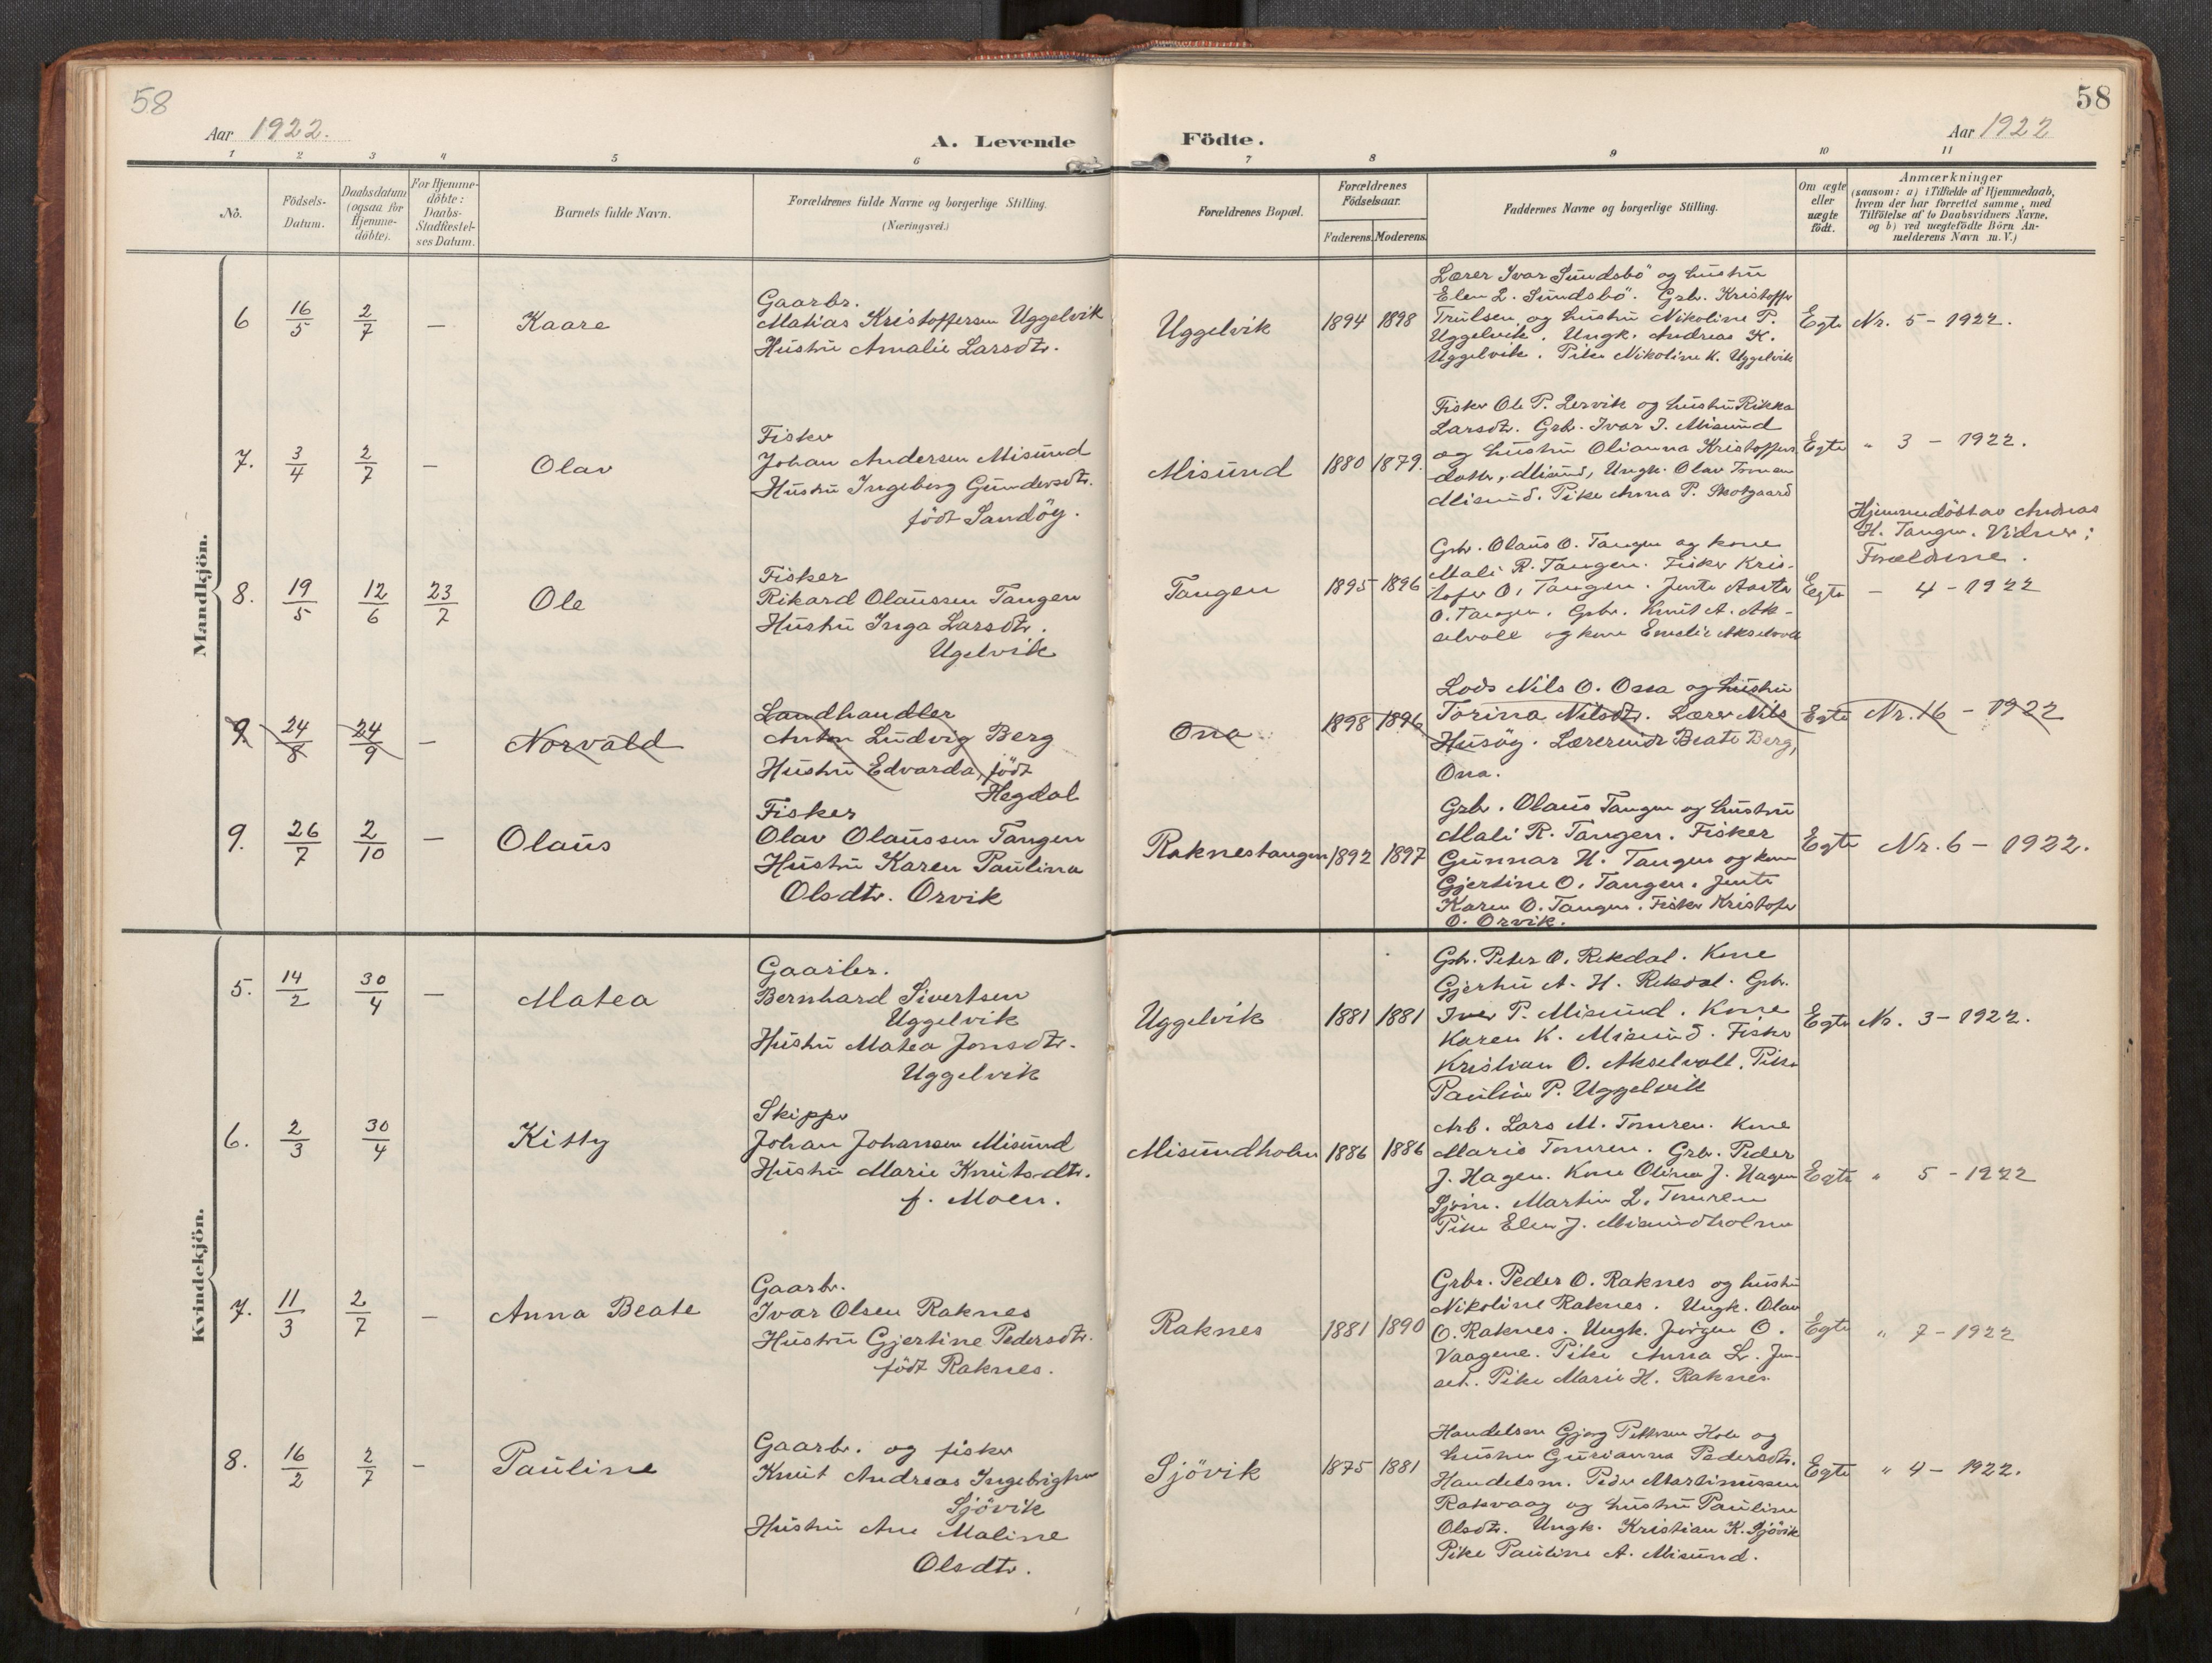 58
58
Aar 1922.
A. Levende
Födte.
Aar 1922
1 2 3 4 5 6 7 8 9 10 11
No.
Födsels-
Datum.
Daabsdatum
(ogsaa for
Hjemme-
döbte).
For Hjemme-
döbte:
Daabs-
Stadfæstel-
ses Datum.
Barnets fulde Navn.
Forældrenes fulde Navne og borgerlige Stilling.
(Næringsvei.)
Forældrenes Bopæl.
Forældrenes
Födselsaar.
Faderens. Moderens.
Faddernes Navne og borgerlige Stilling.
Om ægte
eller
uægte
födt.
Anmærkninger
(saasom: a) i Tilfælde af Hjemmedaab,
hvem der har forrettet samme, med
Tilföielse af to Daabsvidners Navne,
og b) ved uægtefödte Börn An-
melderens Navn m. V.)
Mandkjön.
6 16/5 2/7 — Kaare
Gaarbr.
Matias Kristoffersen Uggelvik
Hustru Amalie Larsdtr.
Uggelvik 1894 1898
Lærer Ivar Sundsbö og hustru
Elen L. Sundsbö. Grb. Kristoffer
Trulsen og hustru Nikoline P.
Uggelvik. Ungk. Andreas K.
Uggelvik. Pike Nikoline K. Uggelvik
Egte Nr. 5 - 1922.
7. 3/4 2/7 — Olav
Fisker
Johan Andersen Misund
Hustru Ingeborg Gundersdtr.
födt Sandöy.
Misund 1880 1879.
Fisker Ole P. Lervik og hustru Rikka
Larsdtr. Grb. Ivar I. Misund
og hustru Olianna Kristoffers
datter, Misund, Ungk. Olav
Misund. Pike Anna P. Skotgaard
Egte " 3 - 1922.
8. 19/5 12/6 23/7 Ole
Fisker
Rikard Olaussen Tangen
Hustru Inga Larsdtr.
Ugelvik
Tangen 1895 1896
Grb. Olaus O. Tangen og kone
Mali R. Tangen. Fisker Kris-
tofer O. Tangen. Jente Aasta
O. Tangen. Grbr. Knut A. Ak-
selvoll og kone Emelie Akselvoll
Egte
Hjemmedöbt av Andreas
H. Tangen. Vidner:
Forældrene.
- 4 - 1922
9. 24/8 24/9 — Norvald
Landhandler
Anton Ludvig Berg
Hustru Edvarda, födt
Hegdal
Ona 1898 1896
Lods Nils O. Ona og hustru
Torina Nilsdtr. Lærer Nils
Husöy. Lærerinde Beate Berg,
Ona.
Egte Nr. 16 - 1922
9. 26/7 2/10 — Olaus
Fisker
Olav Olaussen Tangen
Hustru Karen Paulina
Olsdtr. Orvik
Raknestangen 1892 1897
Grb. Olaus Tangen og hustru
Mali R. Tangen. Fisker
Gunnar H. Tangen og kone
Gjertine O. Tangen. Jente
Karen O. Tangen. Fisker Kristofer
O. Orvik.
Egte Nr. 6 - 1922.
Kvindekjön.
5. 14/2 30/4 — Matea
Gaarbr.
Bernhard Sivertsen
Uggelvik
Hustru Matea Jonsdtr.
Uggelvik
Uggelvik 1881 1881
Grb. Peter O. Rekdal. Kone
Gjertru A. H. Rekdal. Grb.
Iver P. Misund. Kone
Karen K. Misund. Fisker
Kristian O. Akselvoll. Pike
Pauline P. Uggelvik
Egte Nr. 3 - 1922.
6. 2/3 30/4 Kitty
Skipper
Johan Johansen Misund
Hustru Marie Knutsdtr.
f. Moen.
Misundholm 1886 1886
Arb. Lars M. Tomren. Kone
Marie Tomren. Grb. Peder
J. Hagen. Kone Olina J. Hagen
Sjöm. Martin L. Tomren
Pike Elen J. Misundholm
Egte " 5 - 1922
7. 11/3 2/7 — Anna Beate
Gaarbr.
Ivar Olsen Raknes
Hustru Gjertine Pedersdtr.
födt Raknes.
Raknes 1881 1890
Grbr. Peder O. Raknes og hustru
Nikoline Raknes. Ungk. Olav
O. Raknes. Ungk. Jörgen O.
Vaagene. Pike Anna L. Jen-
set. Pike Marie H. Raknes.
Egte " 7 - 1922
8. 16/2 2/7 — Pauline
Gaarbr. og fisker
Knut Andreas Ingebrigtsen
Sjövik
Hustru Ane Maline
Olsdtr.
Sjövik 1875 1881
Handelsm Gjerg Pettersen Hole og
hustru Gurianna Pedersdtr.
Handelsm. Peder Martinussen
Rakvaag og hustru Pauline
Olsdtr. Ungk. Kristian K. Sjövik
Pike Pauline A. Misund.
Egte " 4 - 1922.